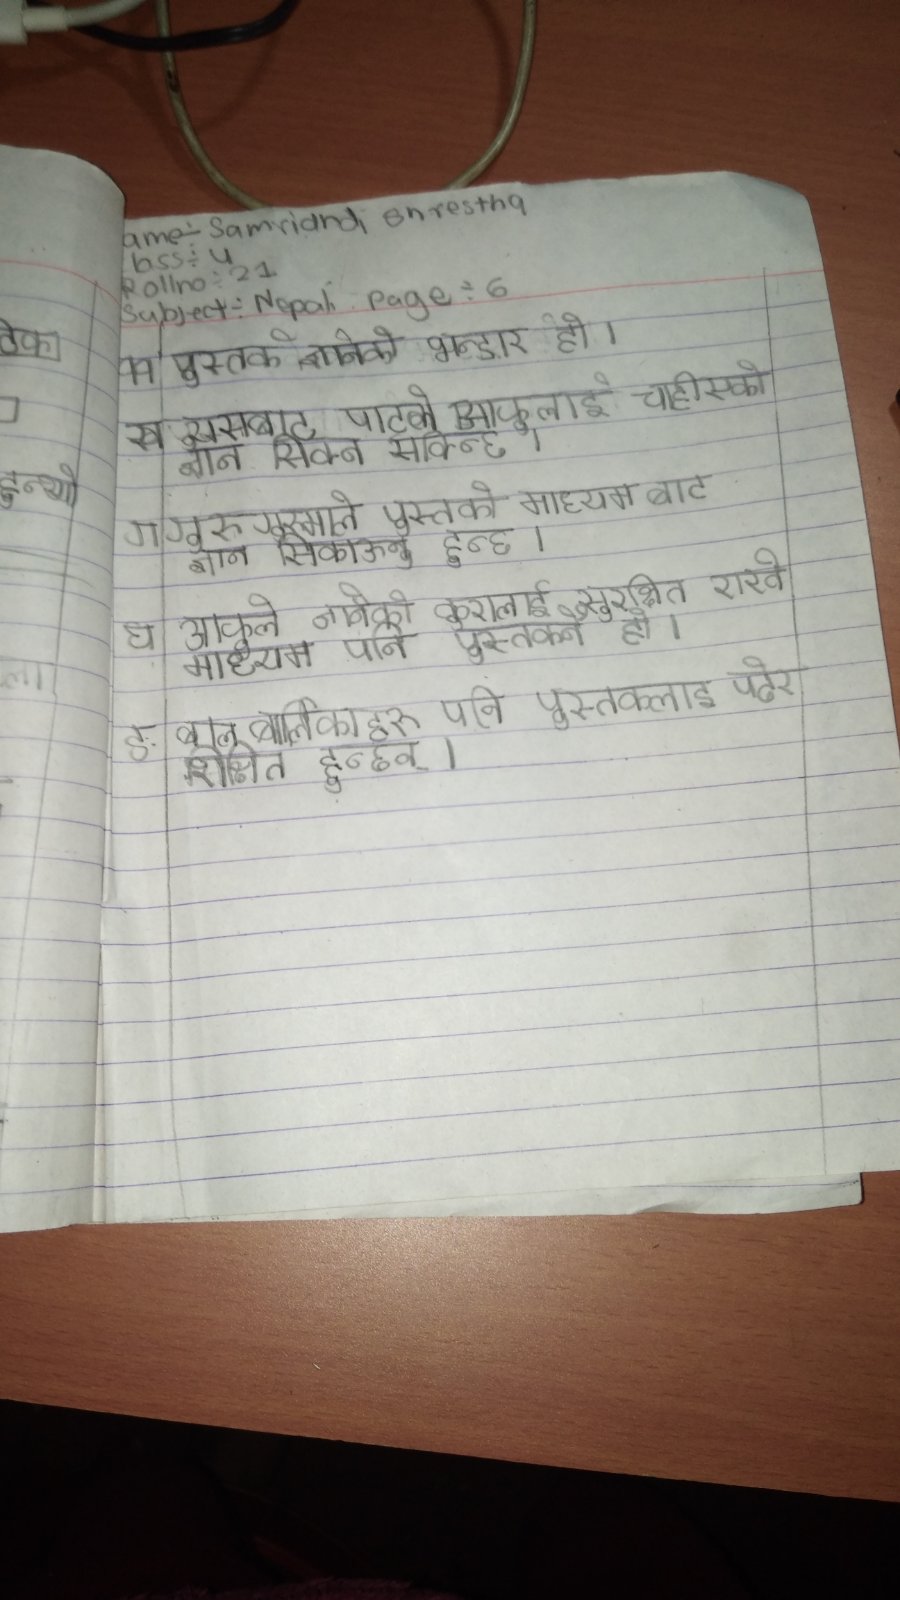 ठेक
हुन्थ्यो
ला
ame:- Samriandi Shrestha
lass:- 4
Rollno:- 21
Subject:- Nepali Page:- 6
पुस्तक भण्डार हो ।
ख यसबाट पाठको आफुलाई चाहीएको
ज्ञान सिक्न सकिन्छ ।
ग गुरु गुरुमाले पुस्तको माध्यम बाट
ज्ञान सिकाऊनु हुन्छ ।
घ आफुले जानेको कुरालाई सुरक्षित राख्ने
माध्यम पनि पुस्तकनै हो ।
ङ. बाल बालिकाहरु पनि पुस्तकलाइ पढेर
शिक्षित हुन्छन् ।